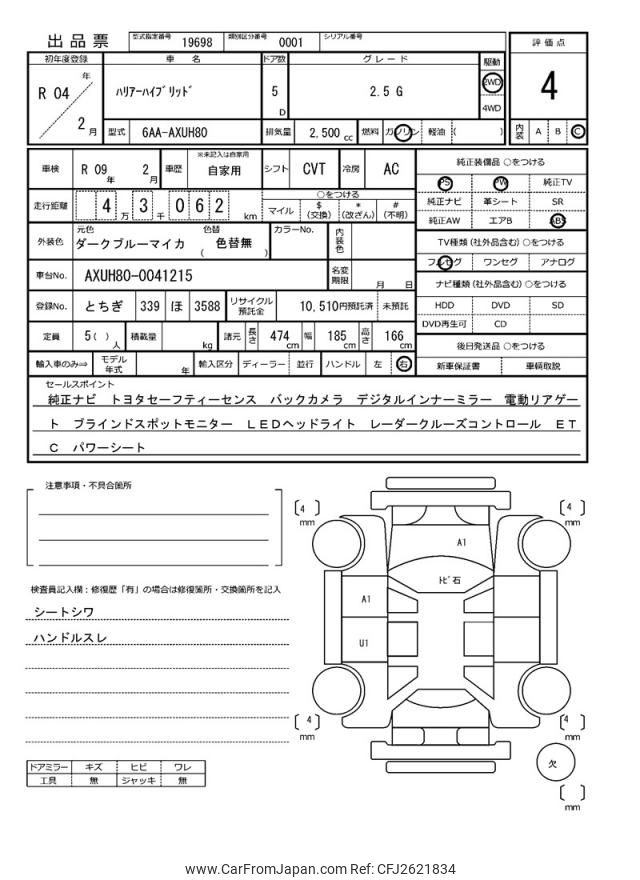 出品票 型式指定番号 19698 類別区分番号 0001 シリアル番号
初年度登録 車名 ドア数 グレード 駆動 評価点
R 04 年 2 月 ﾊﾘｱｰﾊｲﾌﾞﾘｯﾄﾞ 5 D 2.5 G 2WD 4WD 4
型式 6AA-AXUH80 排気量 2,500 cc 燃料 ガソリン 軽油 ( ) 内装 A B C
車検 R 09 年 2 月 車歴 ※未記入は自家用 自家用 シフト CVT 冷房 AC
純正装備品 ○をつける
PS PW 純正TV
走行距離 4 万 3 千 0 6 2 km ○をつける
マイル $ (交換) * (改ざん) # (不明)
純正ナビ 革シート SR
純正AW エアB ABS
外装色 元色 ダークブルーマイカ 色替 ( 色替無 ) カラーNo. 内装色
TV種類 (社外品含む) ○をつける
フルセグ ワンセグ アナログ
車台No. AXUH80-0041215 名変期限 月 日
ナビ種類 (社外品含む) ○をつける
登録No. とちぎ 339 ほ 3588 リサイクル預託金 10,510円預託済 未預託
HDD DVD SD
DVD再生可 CD
定員 5( ) 人 積載量 kg 諸元 長さ 474 cm 幅 185 cm 高さ 166 cm
後日発送品 ○をつける
輸入車のみ⇒ モデル年式 年 輸入区分 ディーラー 並行 ハンドル 左 右
新車保証書 車輌取説
セールスポイント
純正ナビ トヨタセーフティーセンス バックカメラ デジタルインナーミラー 電動リアゲー
ト ブラインドスポットモニター ＬＥＤヘッドライト レーダークルーズコントロール ＥＴ
Ｃ パワーシート
注意事項・不具合箇所
検査員記入欄：修復歴「有」の場合は修復箇所・交換箇所を記入
シートシワ
ハンドルスレ
ドアミラー キズ ヒビ ワレ
工具 無 ジャッキ 無
[ 4 ] mm
[ 4 ] mm
A1
ﾄﾋﾞ石
A1
U1
[ 4 ] mm
[ 4 ] mm
欠
[ ] mm
www.CarFromJapan.com Ref: CFJ2621834